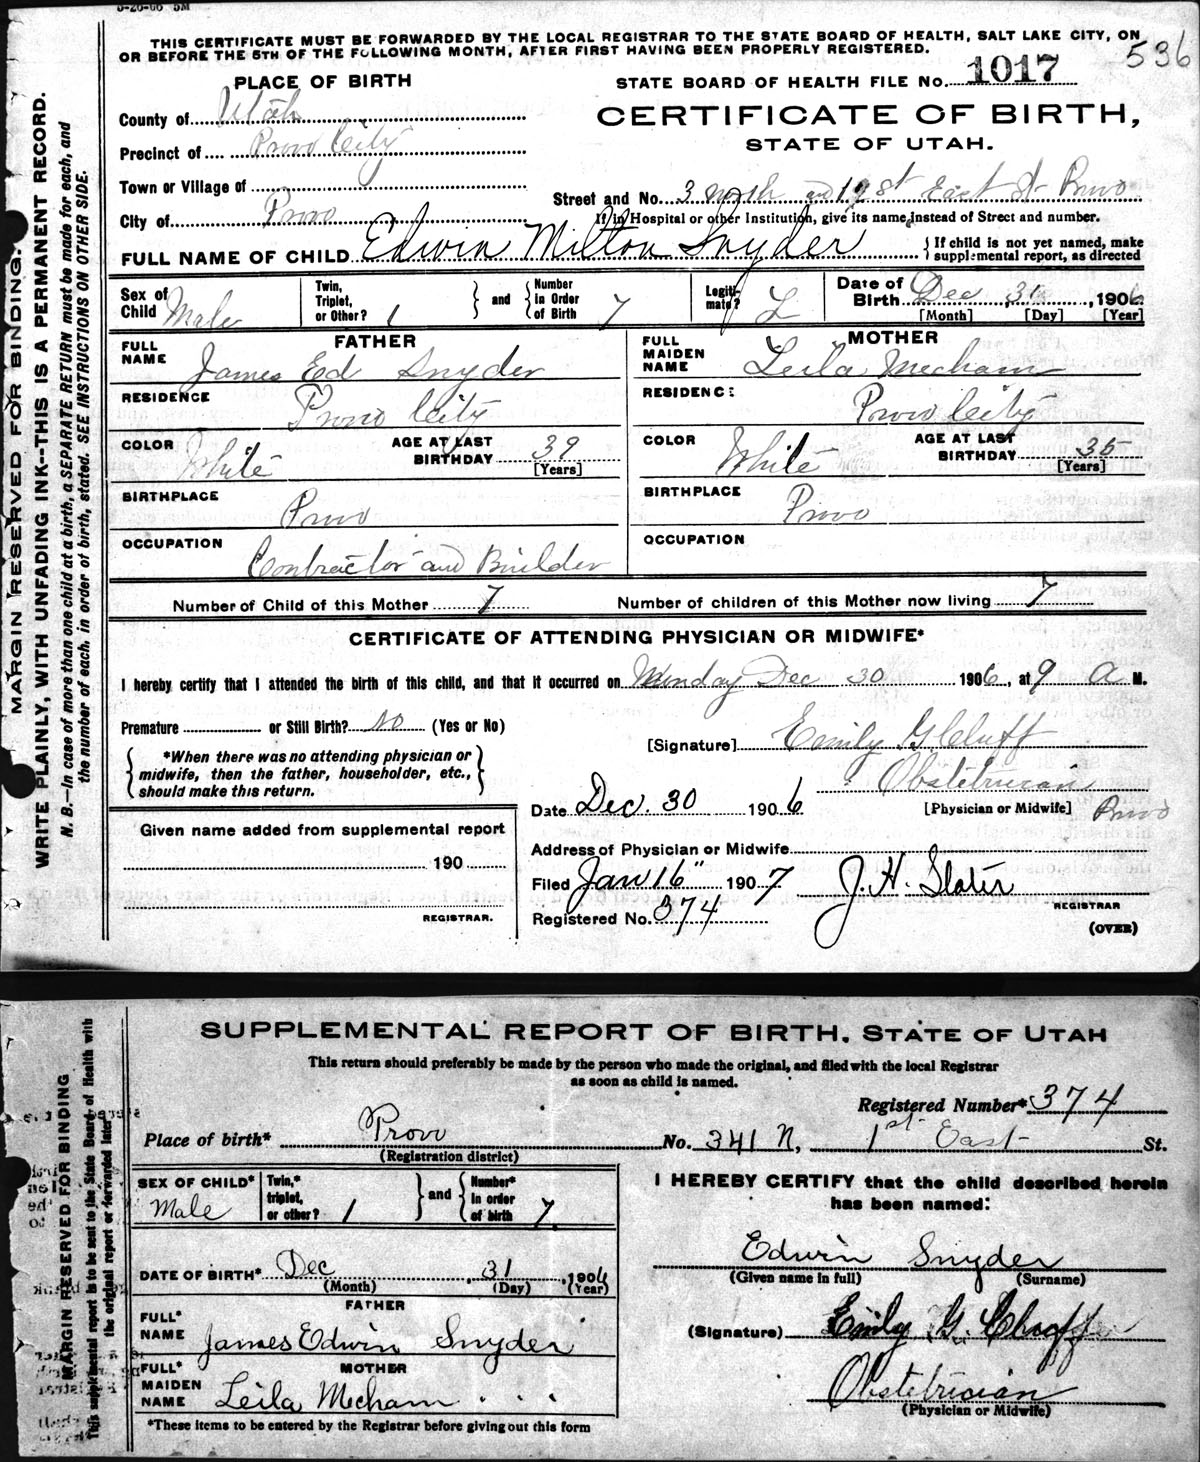 5-26-06 5M
THIS CERTIFICATE MUST BE FORWARDED BY THE LOCAL REGISTRAR TO THE STATE BOARD OF HEALTH, SALT LAKE CITY, ON
OR BEFORE THE 5TH OF THE FOLLOWING MONTH, AFTER FIRST HAVING BEEN PROPERLY REGISTERED.
536
PLACE OF BIRTH
STATE BOARD OF HEALTH FILE NO. 1017
County of Utah
CERTIFICATE OF BIRTH,
Precinct of Provo City
STATE OF UTAH.
Town or Village of
Street and No. 3 North and 1st East St Provo
City of Provo
If in Hospital or other Institution, give its name instead of Street and number.
FULL NAME OF CHILD Edwin Milton Snyder
If child is not yet named, make
supplemental report, as directed
Sex of Child Male
Twin, Triplet, or Other? 1
and
Number in Order of Birth 7
Legitimate? L
Date of Birth Dec 31, 1906
[Month] [Day] [Year]
FATHER
MOTHER
FULL NAME James Ed Snyder
FULL MAIDEN NAME Leila Mecham
RESIDENCE Provo City
RESIDENCE Provo City
COLOR White
AGE AT LAST BIRTHDAY 39 [Years]
COLOR White
AGE AT LAST BIRTHDAY 35 [Years]
BIRTHPLACE Provo
BIRTHPLACE Provo
OCCUPATION Contractor and Builder
OCCUPATION
Number of Child of this Mother 7
Number of children of this Mother now living 7
CERTIFICATE OF ATTENDING PHYSICIAN OR MIDWIFE*
I hereby certify that I attended the birth of this child, and that it occurred on Munday Dec 30 1906, at 9 A M.
Premature or Still Birth? No (Yes or No)
[Signature] Emily G Cluff
*When there was no attending physician or
midwife, then the father, householder, etc.,
should make this return.
Obstetrician
Date Dec. 30 1906
[Physician or Midwife] Provo
Given name added from supplemental report
190
REGISTRAR.
Address of Physician or Midwife
Filed Jan 16" 1907 J. H. Slater
REGISTRAR
Registered No. 374
(OVER)
MARGIN RESERVED FOR BINDING.
WRITE PLAINLY, WITH UNFADING INK--THIS IS A PERMANENT RECORD.
N. B.—In case of more than one child at a birth, a SEPARATE RETURN must be made for each, and
the number of each, in order of birth, stated. SEE INSTRUCTIONS ON OTHER SIDE.
SUPPLEMENTAL REPORT OF BIRTH, STATE OF UTAH
This return should preferably be made by the person who made the original, and filed with the local Registrar
as soon as child is named.
Registered Number* 374
Place of birth* Provo No. 341 N, 1st East St.
(Registration district)
SEX OF CHILD* Male
Twin,* triplet, or other? 1
and
Number* in order of birth 7
I HEREBY CERTIFY that the child described herein
has been named:
DATE OF BIRTH* Dec 31, 1906
(Month) (Day) (Year)
Edwin Snyder
(Given name in full) (Surname)
FATHER
FULL* NAME James Edwin Snyder
(Signature) Emily G. Cluff
MOTHER
FULL* MAIDEN NAME Leila Mecham
Obstetrician
(Physician or Midwife)
*These items to be entered by the Registrar before giving out this form
MARGIN RESERVED FOR BINDING
This supplemental report is to be sent to the State Board of Health with
the original report or forwarded later